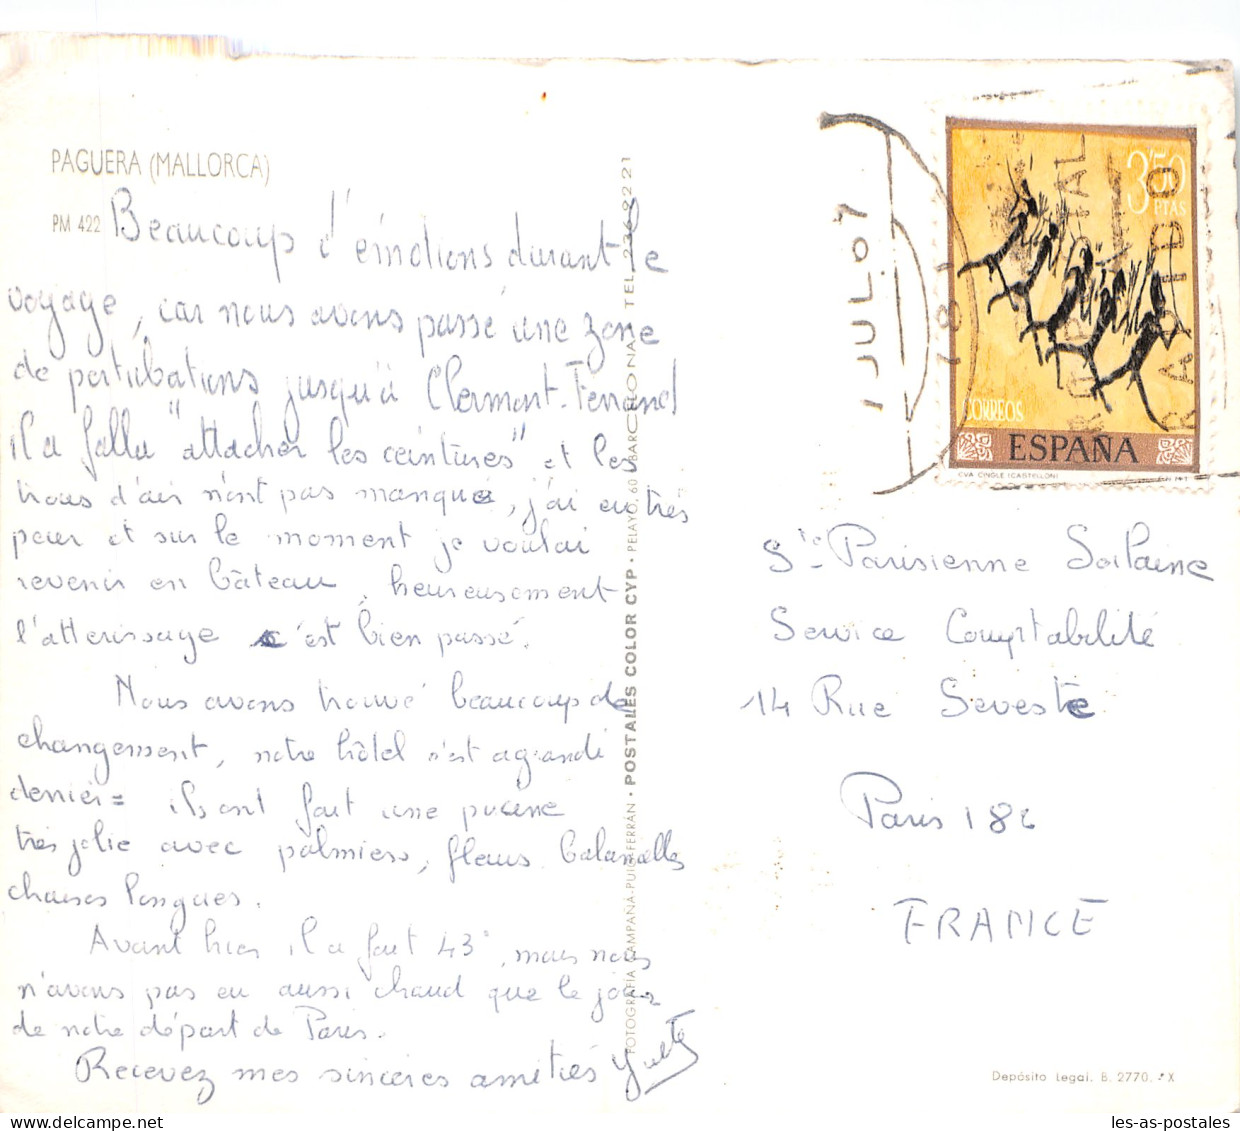 PAGUERA (MALLORCA)
PM 422
Beaucoup d'émotions durant le
voyage, car nous avons passé une zone
de perturbations jusqu'à Clermont-Ferrand
il a fallu "attacher les ceintures" et les
trous d'air n'ont pas manqué, j'ai eu très
peur et sur le moment je voulai
revenir en bâteau, heureusement
l'atterissage c'est bien passé.
Nous avons trouvé beaucoup de
changement, notre hôtel s'est agrandi
derrier = ils ont fait une picine
très jolie avec palmiers, fleurs balancelles
chaises longues.
Avant hier il a fait 43°, mais nous
n'avons pas eu aussi chaud que le jour
de notre départ de Paris.
Recevez mes sincères amitiés
FOTOGRAFÍA CAMPAÑA-PUIG FERRÁN · POSTALES COLOR CYP · PELAYO, 60 BARCELONA - TEL. 2
1 JUL. 07
3'50
PTAS
CORREOS
ESPAÑA
CVA. CINGLE (CASTELLON)
Sté Parisienne
Service Comptabilité
14 Rue Seveste
Paris 18e
FRANCE
Depósito Legal. B. 2770. - X
les-as-postales